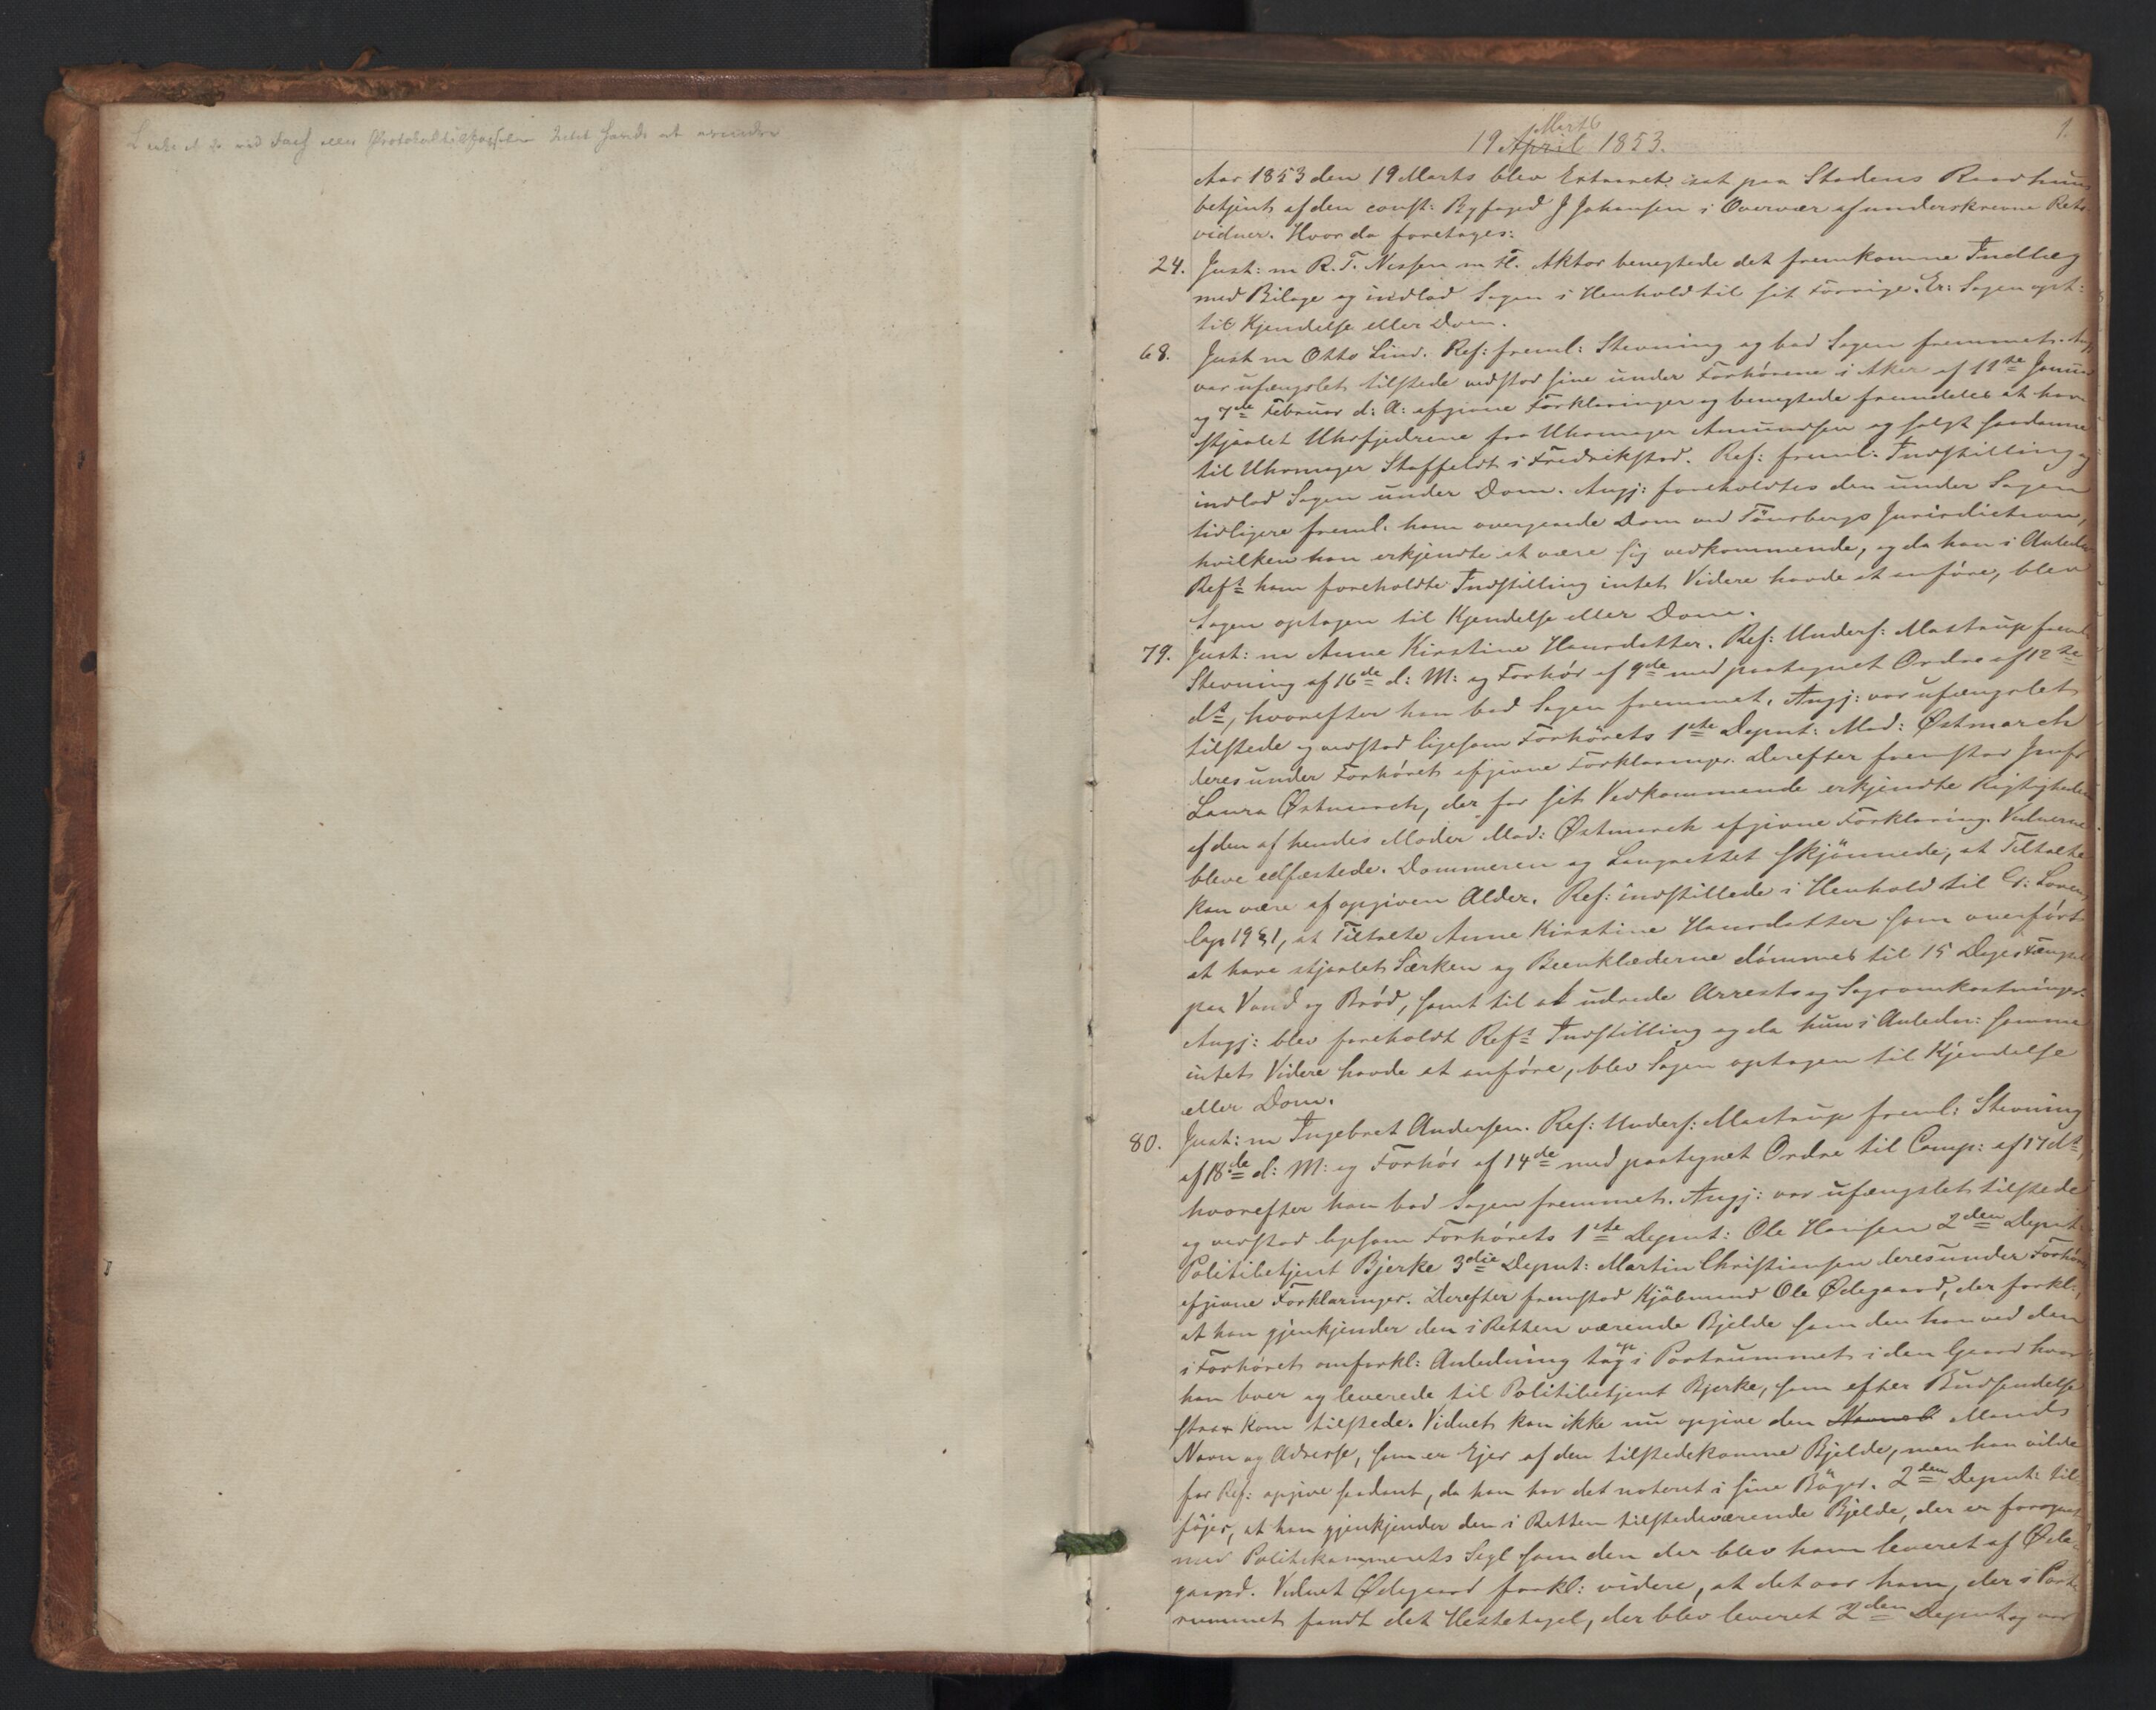 1.
Marts
19 April 1853.
Aar 1853 den 19 Marts blev Extraret sat paa Stadens Raadhuus
betjent af den const: Byfoged J Johansen i Overvær af underskrevne Rets-
vidner. Hvor da foretages:
24. Just: m R. T. Nissen m Fl. Aktor benegtede det fremkomne Indlæg
med Bilage og indlod Sagen i Henhold til sit Forrige. Er: Sagen opt:
til Kjendelse eller Dom.
68. Just m Otto Lind. Ref: freml: Stevning og bad Sagen fremmet. Angj
var ufængslet tilstede vedstod sine under Forhørene i Aker af 11te Januar
og 7de Februar d: A: afgivne Forklaringer og benegtede fremdeles at have
stjaalet Uhrfjedrene fra Uhrmager Amundsen og solgt saadanne
til Uhrmager Staffeldt i Fredrikstad. Ref: freml: Indstilling og
indlod Sagen under Dom. Angj: foreholdtes den under Sagen
tidligere freml: ham overgaaede Dom ved Tönsbergs Jurisdiction,
hvilken han erkjendte at være sig vedkommende, og da han i Anledn
Refs ham foreholdte Indstilling intet Videre havde at anföre, blev
Sagen optagen til Kjendelse eller Dom.
79. Just: m Anne Kirstine Hansdatter. Ref: Underf: Mastrup freml
Stevning af 16de d: M: og Forhör af 9de med paategnet Ordre af 12te
ds, hvorefter han bad Sagen fremmet. Angj: var ufængslet
tilstede og vedstod ligesom Forhörets 1ste Deput: Mad: Østmarch
deres under Forhöret afgivne Forklaringer. Derefter fremstod Jomfr
Laura Østmarch, der for sit Vedkommende erkjendte Rigtigheden
af den af hendes Moder Mad: Østmarch afgivne Forklaring. Vidnerne
bleve edfæstede. Dommeren og Laugrettet skjönnede, at Tiltalte
kan være af opgiven Alder. Ref: indstillede i Henhold til Cr: Loven
Cap 19 § 1, at Tiltalte Anne Kirstine Hansdatter som overfört
at have stjaalet Særken og Beenklæderne dömmes til 15 Dages Fængsel
paa Vand og Bröd, samt til at udrede Arrest og Sagsomkostninger.
Angj: blev foreholdt Refs Indstilling og da hun i Anledn: samme
intet Videre havde at anföre, blev Sagen optagen til Kjendelse
eller Dom.
80. Just: m Ingebret Andersen. Ref: Underf: Mastrup freml: Stevning
af 18de d: M: og Forhör af 14de med paategnet Ordre til Comp: af 17 ds,
hvorefter han bad Sagen fremmet. Angj: var ufængslet tilstede
og vedstod ligesom Forhörets 1ste Deput: Ole Hansen 2den Deput
Politibetjent Bjerke 3die Deput: Martin Christiansen deres under Forhör
afgivne Forklaringer. Derefter fremstod Kjöbmand Ole Ødegaard, der forkl:,
at han gjenkjender den i Retten værende Bjelde som den han ved den
i Forhöret omforkl: Anledning tog op i Portrummet i den Gaard hvor
han boer og leverede til Politibetjent Bjerke, som efter Budsendelse
strax kom tilstede. Vidnet kan ikke nu opgive den Navnet Mands
Navn og Adresse, som er Ejer af den tilstedekomne Bjelde, men han vilde
for Ref: opgive saadant, da han har det noteret i sine Böger. 2den Deput: til-
föjer, at han gjenkjender den i Retten tilstedeværende Bjelde, der er forsynet
med Politikammerets Segl som den der blev ham leveret af Øde-
gaard. Vidnet Ødegaard forkl: videre, at det var ham, der i Port-
rummet fandt det Hestetagel, der blev leveret 2den Deput og var